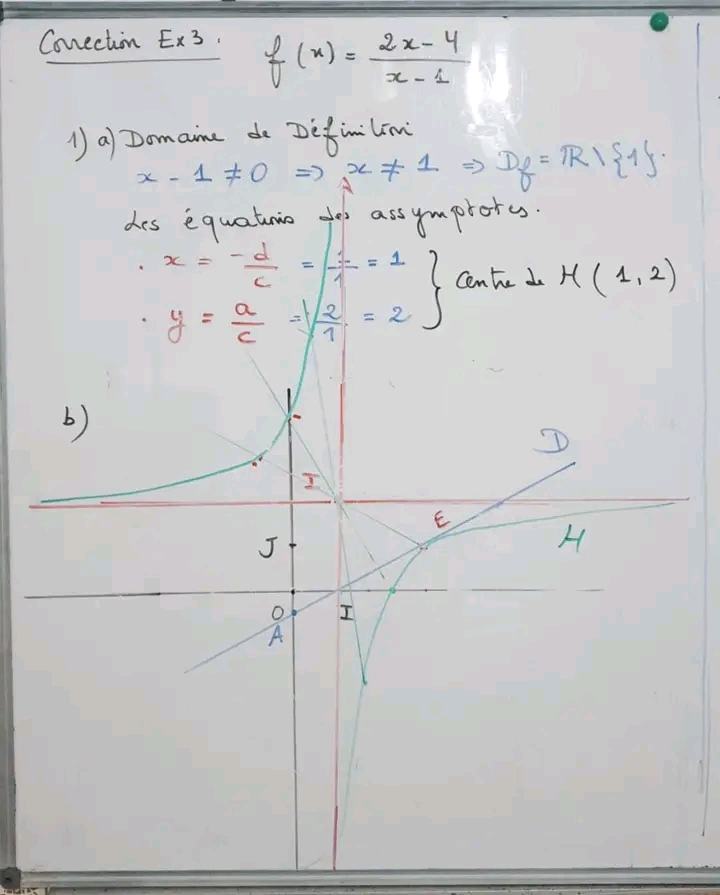 Correction Ex 3 :
f(x) = (2x - 4)/(x - 1)
1) a) Domaine de Définition
x - 1 ≠ 0 => x ≠ 1 => Df = ℝ \ {1}.
Les équations des assymptotes.
. x = -d/c = 1/1 = 1
. y = a/c = 2/1 = 2
} Centre de H (1, 2)
b)
D
I
E
J
H
O
I
A